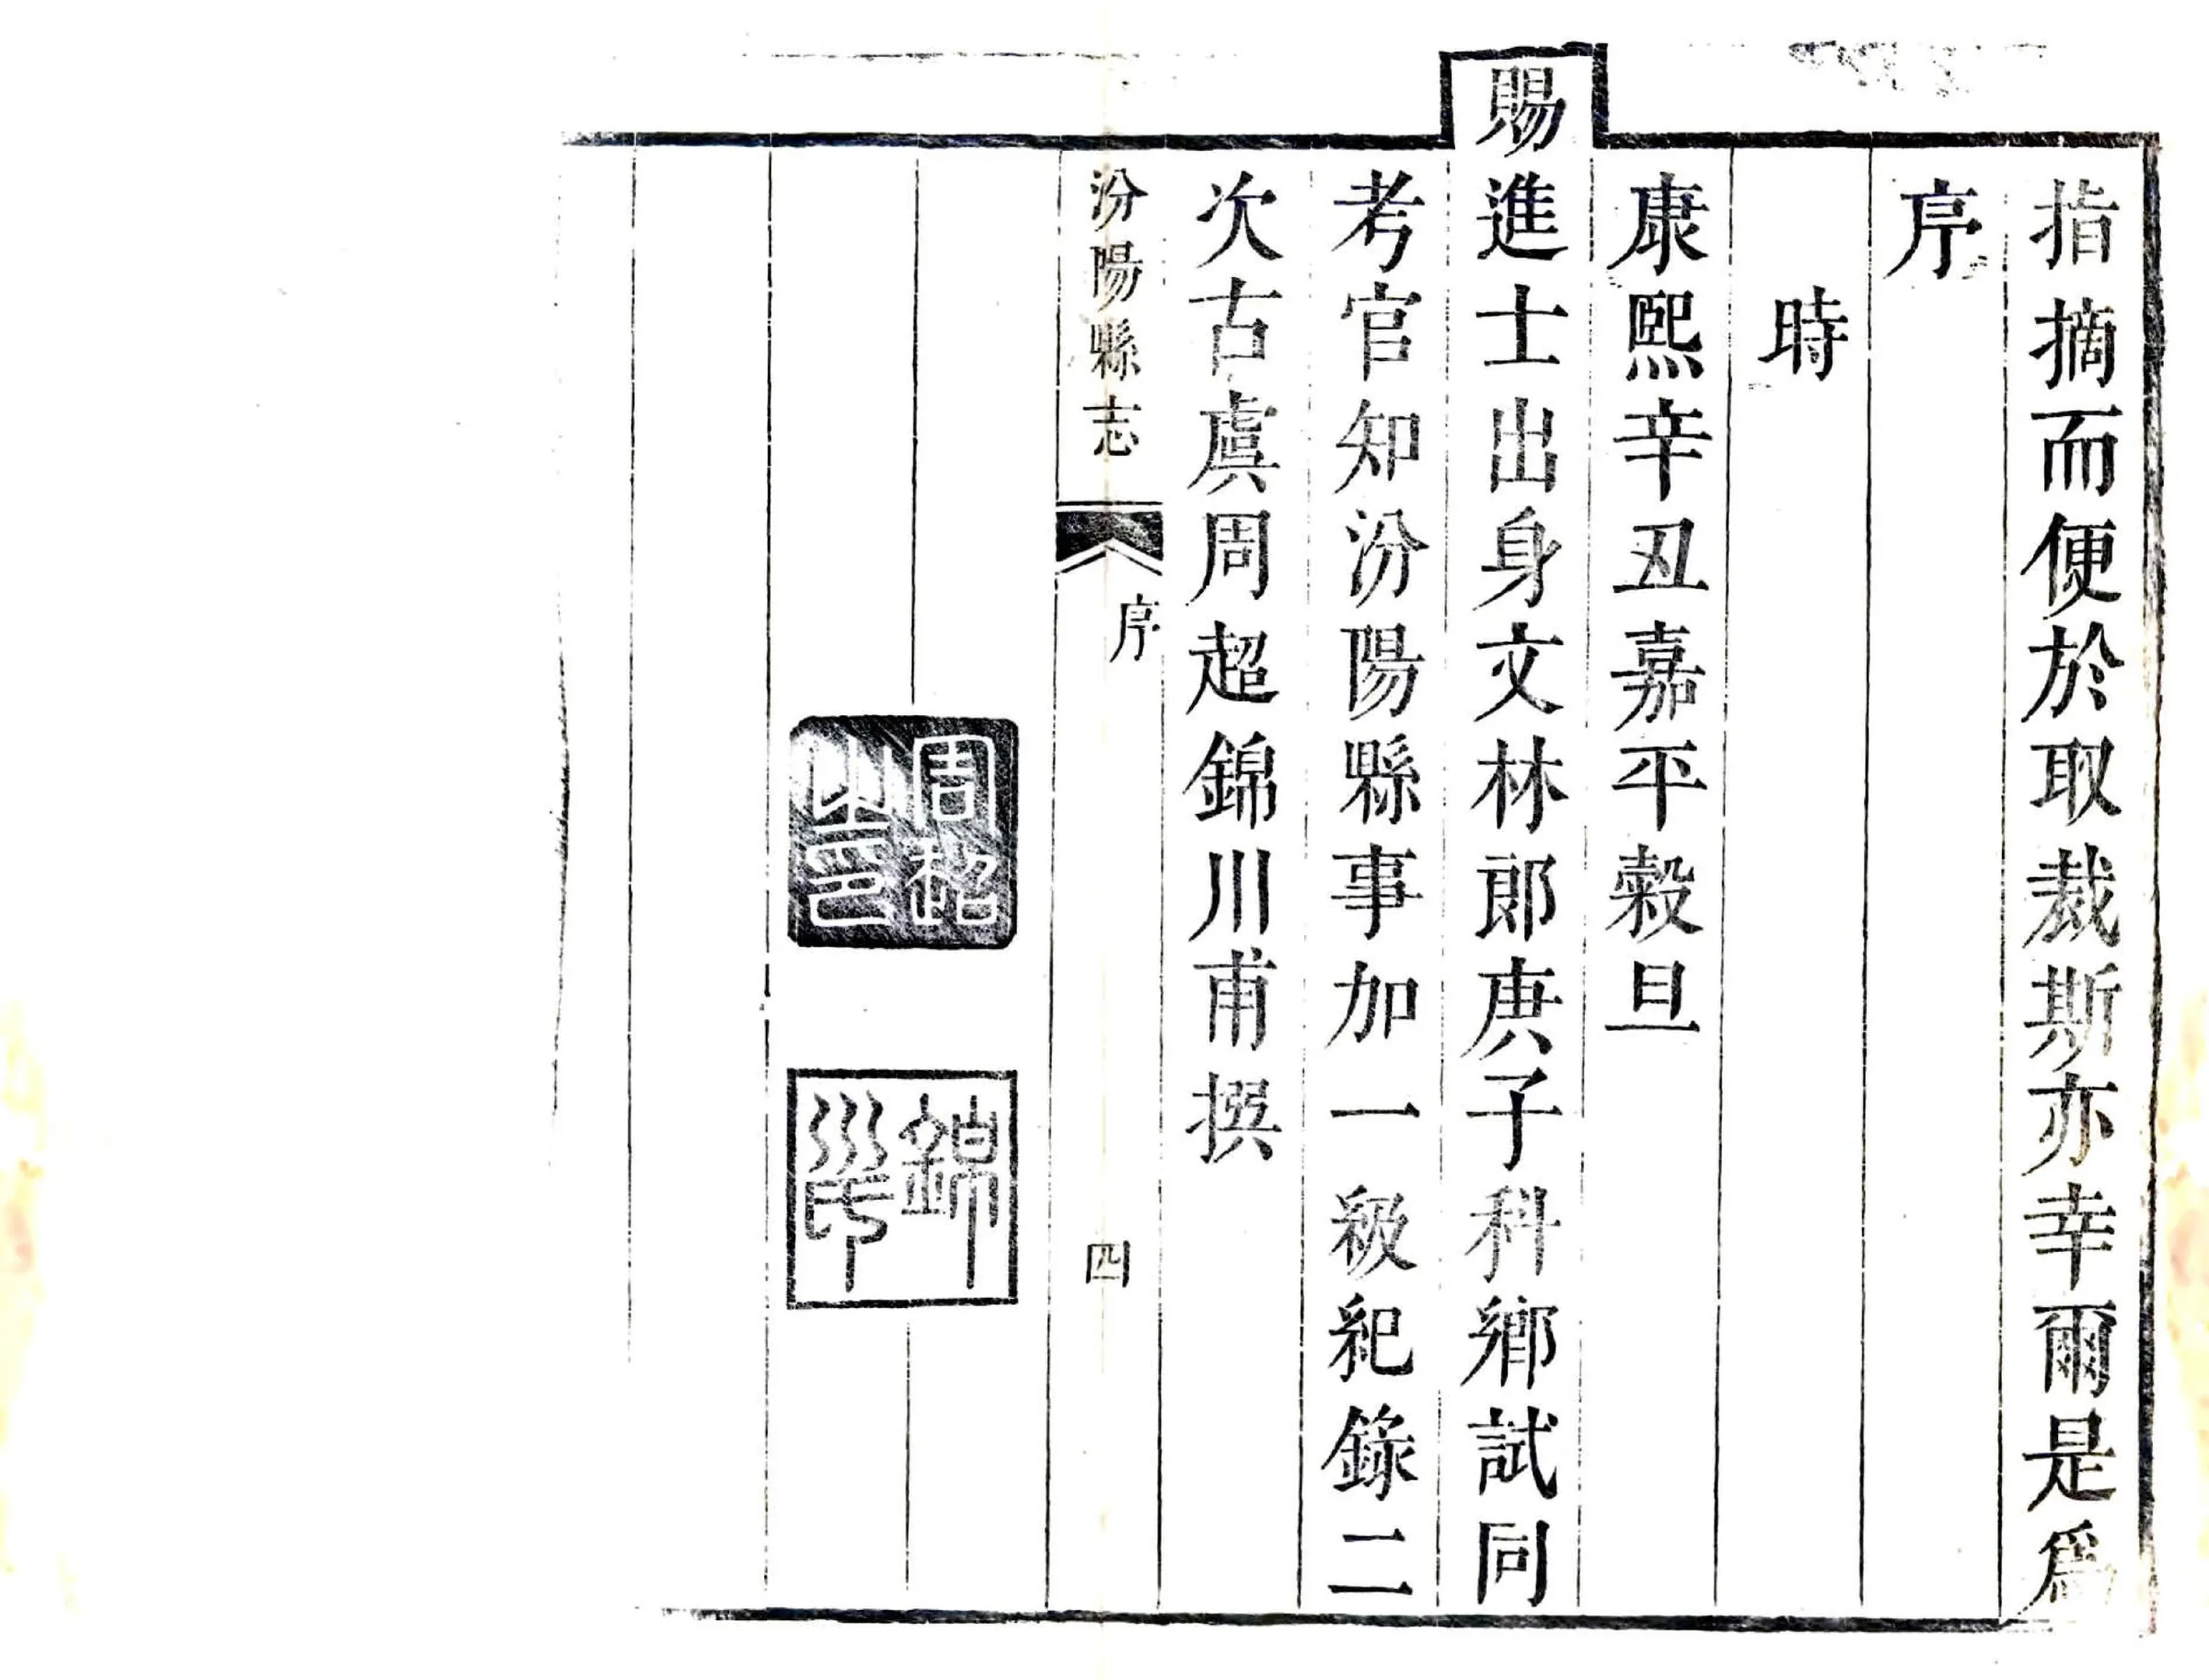 指摘而便於取裁斯亦幸爾是爲
序
時
康熙辛丑嘉平穀旦
賜進士出身文林郎庚子科鄉試同
考官知汾陽縣事加一級紀錄二
次古虞周超錦川甫撰
汾陽縣志
序
四
周超之印
錦川氏